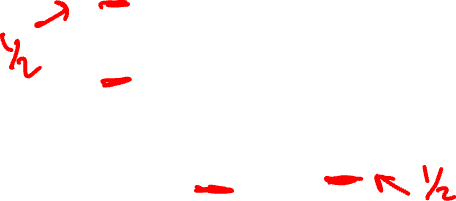 1/2
1/2